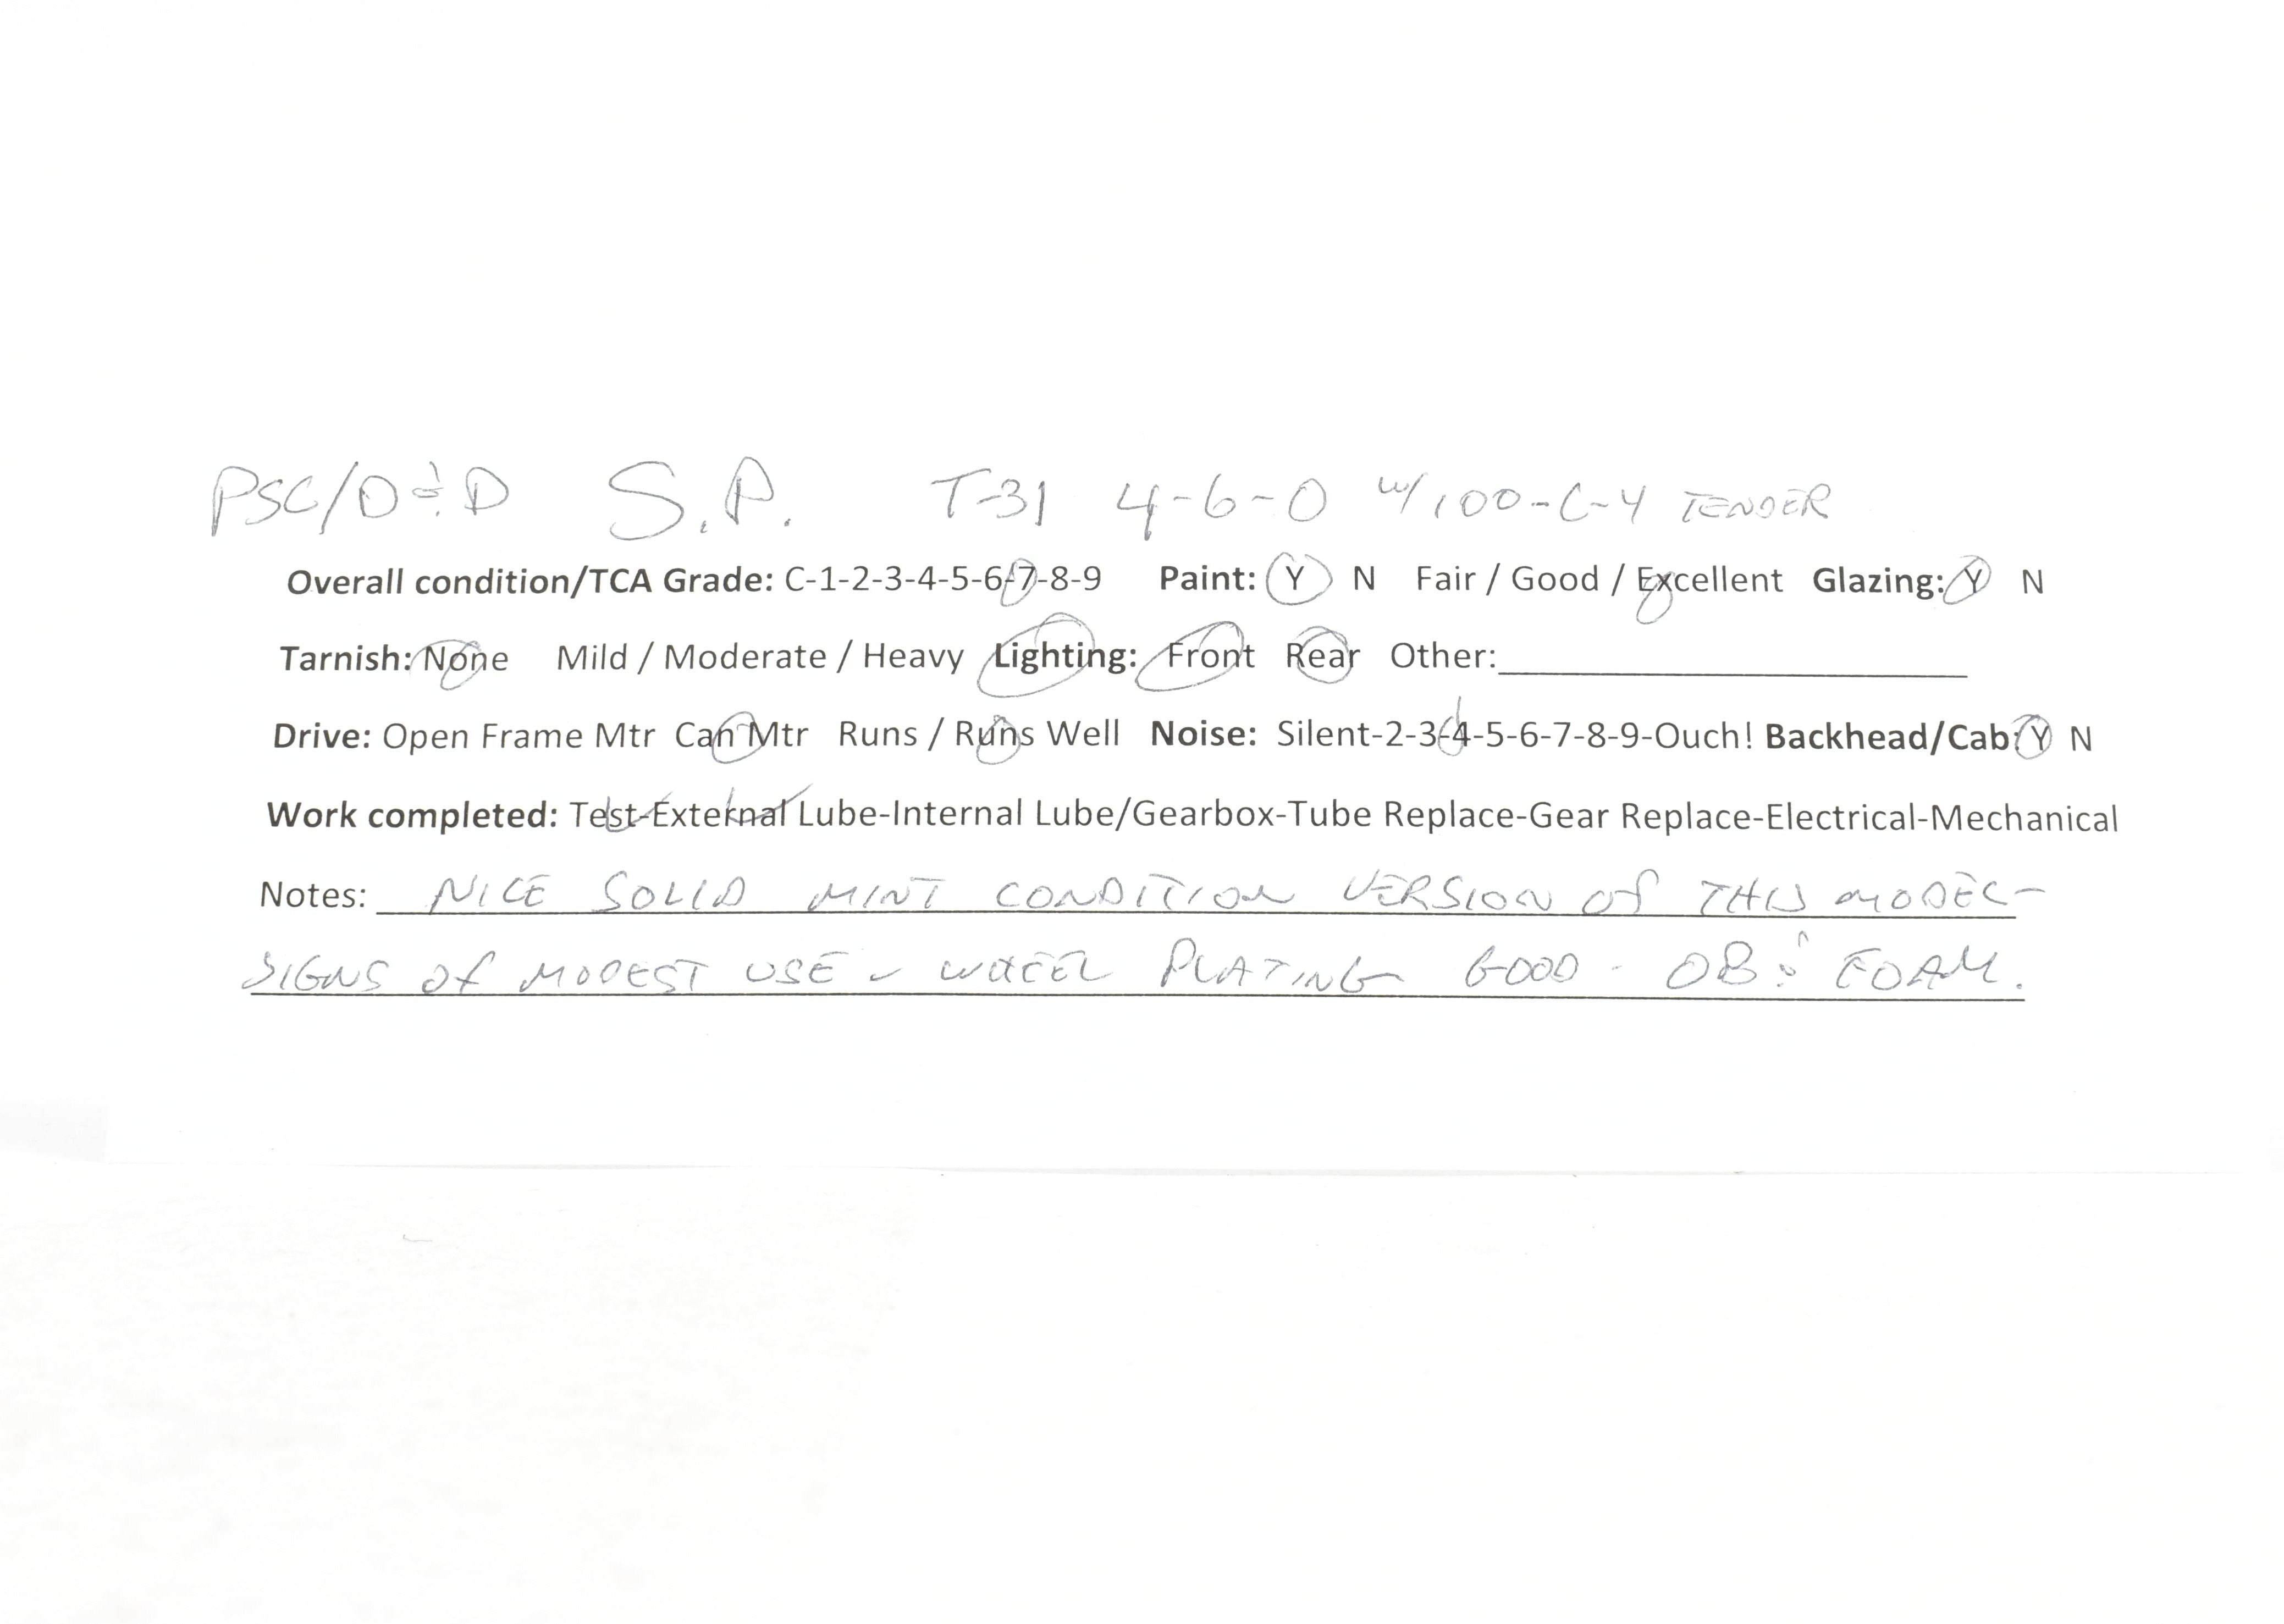 PSC/D&D S.P. T-31 4-6-0 w/100-C-4 TENDER
Overall condition/TCA Grade: C-1-2-3-4-5-6-7-8-9 Paint: Y N Fair / Good / Excellent Glazing: Y N
Tarnish: None Mild / Moderate / Heavy Lighting: Front Rear Other:
Drive: Open Frame Mtr Can Mtr Runs / Runs Well Noise: Silent-2-3-4-5-6-7-8-9-Ouch! Backhead/Cab: Y N
Work completed: Test-External Lube-Internal Lube/Gearbox-Tube Replace-Gear Replace-Electrical-Mechanical
Notes: NICE SOLID MINT CONDITION VERSION OF THIS MODEL-
SIGNS OF MODEST USE - WHEEL PLATING GOOD - OB & FOAM.